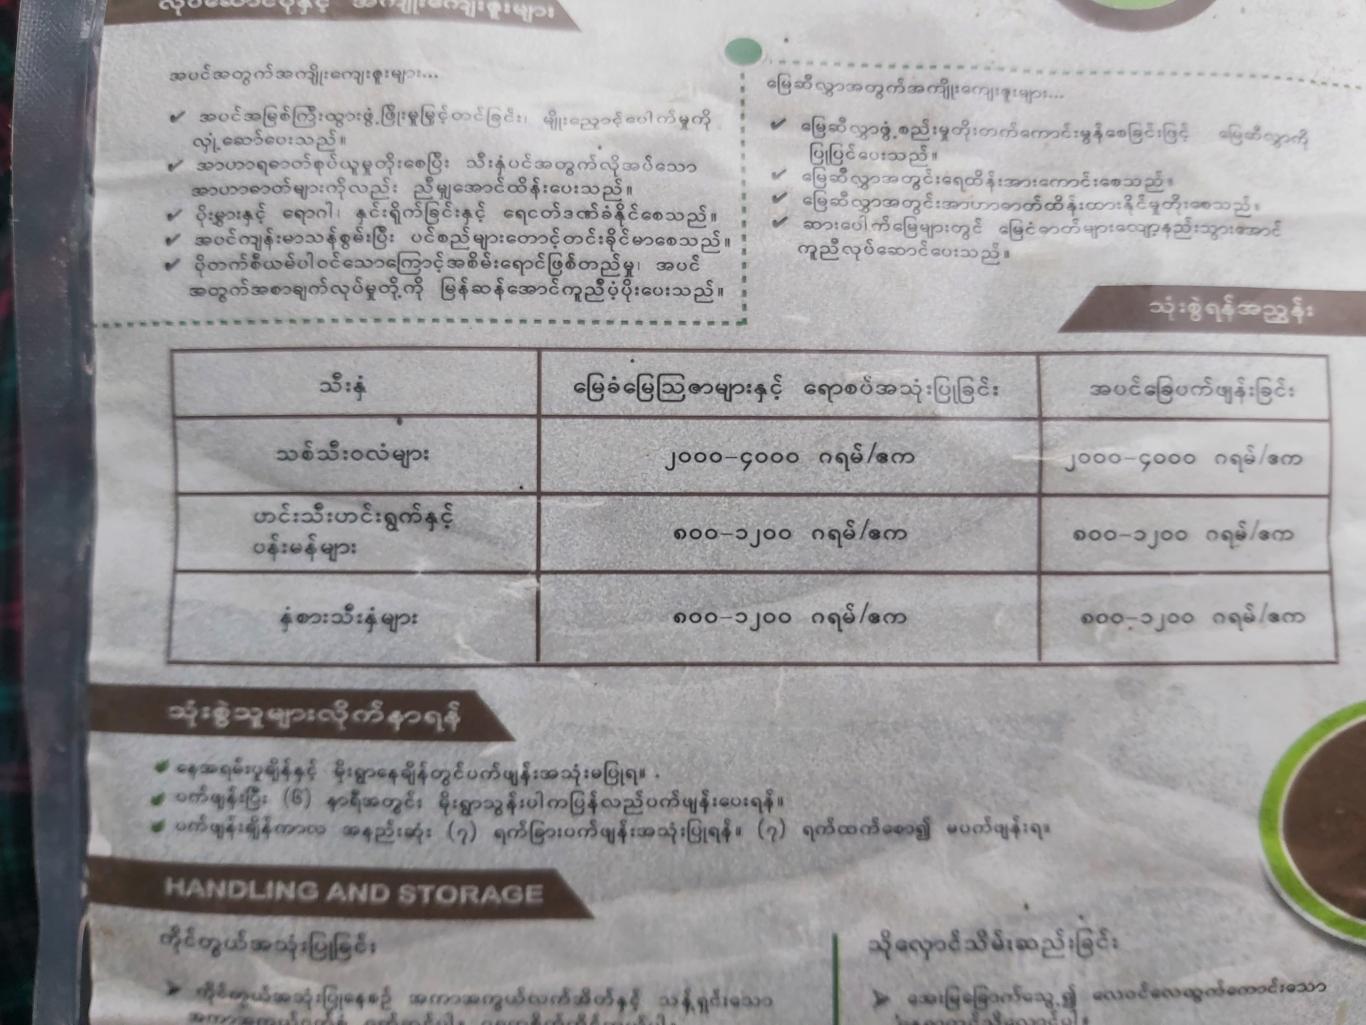 လုပ်ဆောင်ပုံနှင့် အကျိုးကျေးဇူးများ
အပင်အတွက်အကျိုးကျေးဇူးများ...
✔ အပင်အမြစ်ကြီးထွားဖွံ့ဖြိုးမှုမြှင့်တင်ခြင်း၊ မျိုးညှောင့်ပေါက်မှုကို
လှုံ့ဆော်ပေးသည်။
✔ အာဟာရဓာတ်စုပ်ယူမှုတိုးစေပြီး သီးနှံပင်အတွက်လိုအပ်သော
အာဟာဓာတ်များကိုလည်း ညီမျှအောင်ထိန်းပေးသည်။
✔ ပိုးမွှားနှင့် ရောဂါ၊ နှင်းရိုက်ခြင်းနှင့် ရေငတ်ဒဏ်ခံနိုင်စေသည်။
✔ အပင်ကျန်းမာသန်စွမ်းပြီး ပင်စည်များတောင့်တင်းခိုင်မာစေသည်။
✔ ပိုတက်စီယမ်ပါဝင်သောကြောင့်အစိမ်းရောင်ဖြစ်တည်မှု၊ အပင်
အတွက်အစာချက်လုပ်မှုတို့ကို မြန်ဆန်အောင်ကူညီပံ့ပိုးပေးသည်။
မြေဆီလွှာအတွက်အကျိုးကျေးဇူးများ...
✔ မြေဆီလွှာဖွဲ့စည်းမှုတိုးတက်ကောင်းမွန်စေခြင်းဖြင့် မြေဆီလွှာကို
ပြုပြင်ပေးသည်။
✔ မြေဆီလွှာအတွင်းရေထိန်းအားကောင်းစေသည်။
✔ မြေဆီလွှာအတွင်းအာဟာဓာတ်ထိန်းထားနိုင်မှုတိုးစေသည်။
✔ ဆားပေါက်မြေများတွင် မြေငံဓာတ်များလျော့နည်းသွားအောင်
ကူညီလုပ်ဆောင်ပေးသည်။
သုံးစွဲရန်အညွှန်း
သီးနှံ မြေခံမြေသြဇာများနှင့် ရောစပ်အသုံးပြုခြင်း အပင်ခြေပက်ဖျန်းခြင်း
သစ်သီးဝလံများ ၂၀၀၀-၄၀၀၀ ဂရမ်/ဧက ၂၀၀၀-၄၀၀၀ ဂရမ်/ဧက
ဟင်းသီးဟင်းရွက်နှင့်
ပန်းမန်များ ၈၀၀-၁၂၀၀ ဂရမ်/ဧက ၈၀၀-၁၂၀၀ ဂရမ်/ဧက
နှံစားသီးနှံများ ၈၀၀-၁၂၀၀ ဂရမ်/ဧက ၈၀၀-၁၂၀၀ ဂရမ်/ဧက
သုံးစွဲသူများလိုက်နာရန်
နေအရမ်းပူချိန်နှင့် မိုးရွာနေချိန်တွင်ပက်ဖျန်းအသုံးမပြုရ။
ပက်ဖျန်းပြီး (၆) နာရီအတွင်း မိုးရွာသွန်းပါကပြန်လည်ပက်ဖျန်းပေးရန်။
ပက်ဖျန်းချိန်ကာလ အနည်းဆုံး (၇) ရက်ခြားပက်ဖျန်းအသုံးပြုရန်။ (၇) ရက်ထက်စော၍ မပက်ဖျန်းရ။
HANDLING AND STORAGE
ကိုင်တွယ်အသုံးပြုခြင်း
➤ ကိုင်တွယ်အသုံးပြုနေစဉ် အကာအကွယ်လက်အိတ်နှင့် သန့်ရှင်းသော
သိုလှောင်သိမ်းဆည်းခြင်း
➤ အေးမြခြောက်သွေ့၍ လေဝင်လေထွက်ကောင်းသော